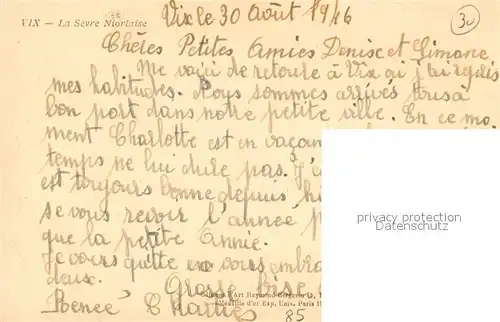 VIX — La Sèvre Niortaise
Vix le 30 Août 1946
30
Chères Petites Amies Denise et Simone
Me voici de retoure à Vix où j'ai repris
mes habitudes. Nous sommes arrivés tous à
bon port dans notre petite ville. En ce mo
ment Charlotte est en vaçan
temps ne lui dure pas. J'e
est toujours bonne depuis hi
se vous revoir l'année p
que la petite Annie.
Je vous quitte en vous embra
deux.
Grosse bise
Renée Charles
85
d'Art Raymond Bergevin
Médaille d'or Exp. Univ. Paris
privacy protection
datenschutz